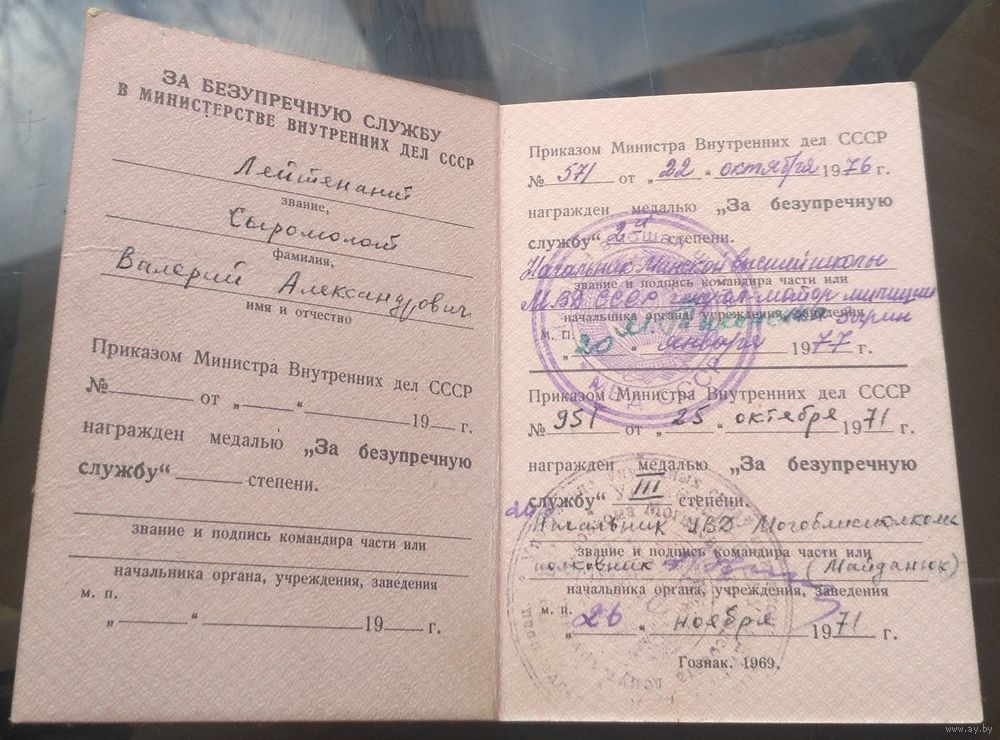 ЗА БЕЗУПРЕЧНУЮ СЛУЖБУ
В МИНИСТЕРСТВЕ ВНУТРЕННИХ ДЕЛ СССР
Лейтенант
звание,
Сыромолот
фамилия,
Валерий Александрович
имя и отчество
Приказом Министра Внутренних дел СССР
№ от „ “ 19 г.
награжден медалью „За безупречную
службу“ степени.
звание и подпись командира части или
начальника органа, учреждения, заведения
м. п.
„ “ 19 г.
Приказом Министра Внутренних дел СССР
№ 571 от „22“ октября 1976 г.
награжден медалью „За безупречную
службу“ 2й степени.
Начальник Минской высшей школы
звание и подпись командира части или
МВД СССР генерал-майор милиции
начальника органа, учреждения, заведения
м. п.
„20“ января 1977 г.
МВД СССР
Приказом Министра Внутренних дел СССР
№ 951 от „25“ октября 1971 г.
награжден медалью „За безупречную
службу“ III степени.
Начальник УВД Могоблисполкома
звание и подпись командира части или
полковник (Майданюк)
начальника органа, учреждения, заведения
м. п.
„26“ ноября 1971 г.
Гознак. 1969.
www.ay.by